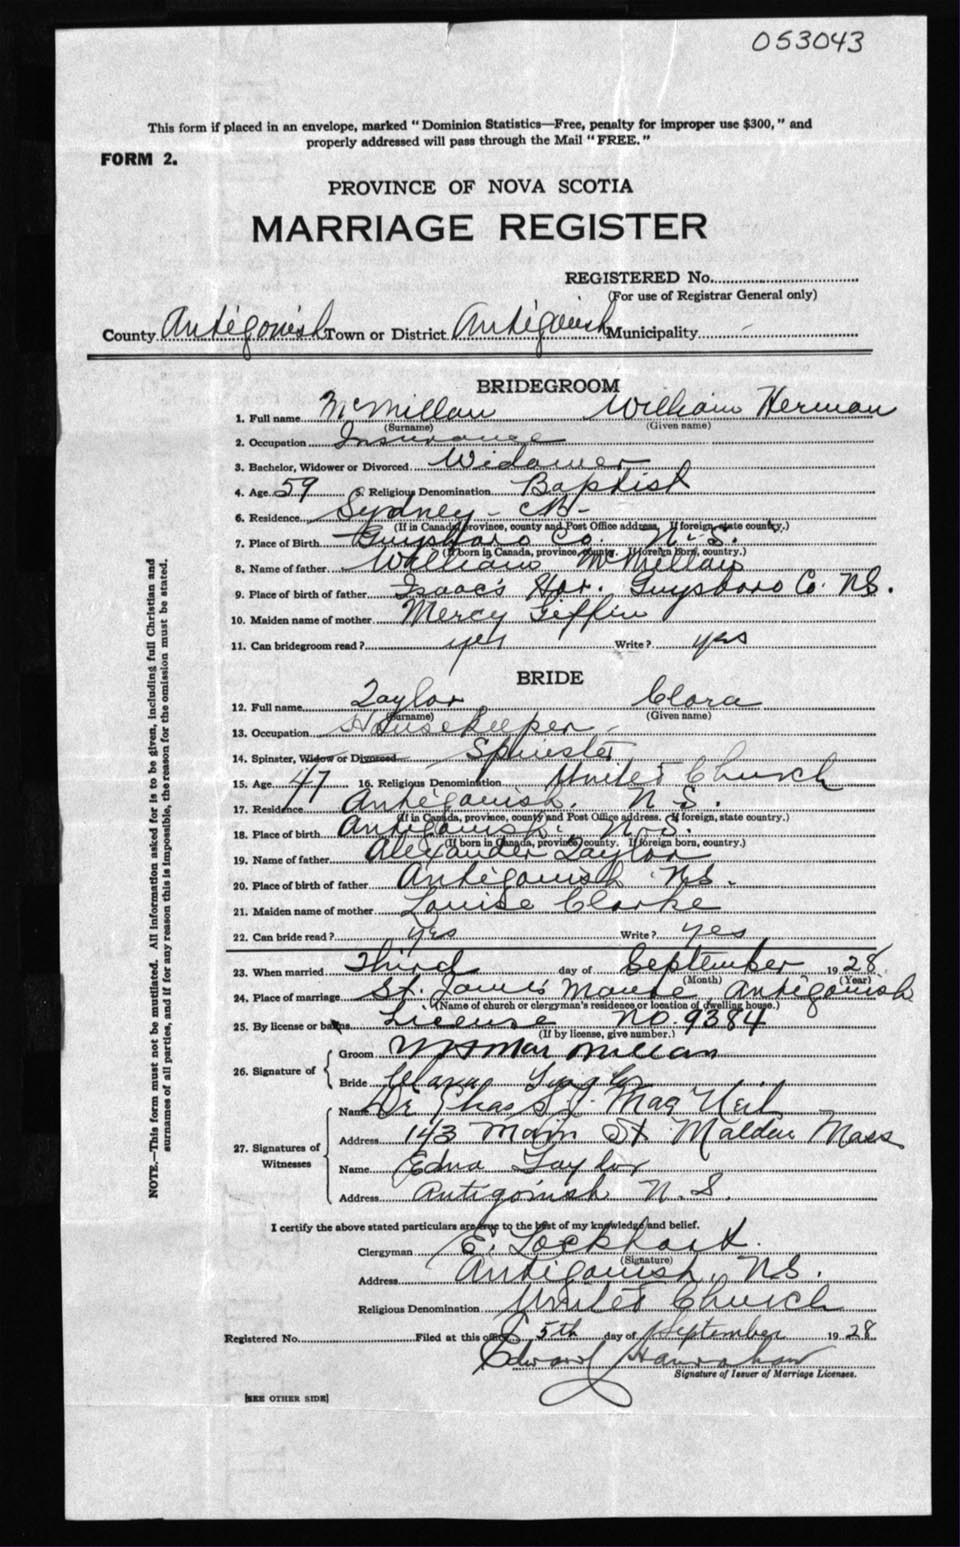 053043
This form if placed in an envelope, marked "Dominion Statistics—Free, penalty for improper use $300," and
properly addressed will pass through the Mail "FREE."
FORM 2.
PROVINCE OF NOVA SCOTIA
MARRIAGE REGISTER
REGISTERED No.
(For use of Registrar General only)
County Antigonish Town or District Antigonish Municipality
BRIDEGROOM
1. Full name McMillan William Herman
(Surname) (Given name)
2. Occupation Insurance
3. Bachelor, Widower or Divorced Widower
4. Age 59 5. Religious Denomination Baptist
6. Residence Sydney - C.B-
(If in Canada, province, county and Post Office address. If foreign, state country.)
7. Place of Birth Guysboro Co. N.S.
(If born in Canada, province, county. If foreign born, country.)
8. Name of father William McMillan
9. Place of birth of father Isaac's Har. Guysboro Co. NS.
10. Maiden name of mother Mercy Giffin
11. Can bridegroom read? yes Write? yes
BRIDE
12. Full name Taylor Clara
(Surname) (Given name)
13. Occupation Housekeeper
14. Spinster, Widow or Divorced Spinster
15. Age 47 16. Religious Denomination United Church
17. Residence Antigonish. N S.
(If in Canada, province, county and Post Office address. If foreign, state country.)
18. Place of birth Antigonish. N.S.
(If born in Canada, province, county. If foreign born, country.)
19. Name of father Alexander Taylor
20. Place of birth of father Antigonish N.S.
21. Maiden name of mother Louise Clarke
22. Can bride read? yes Write? yes
23. When married Third day of September 1928
(Month) (Year)
24. Place of marriage St. James Manse Antigonish
(Name of church or clergyman's residence or location of dwelling house.)
25. By license or banns License No. 9384
(If by license, give number.)
26. Signature of
Groom W H MacMillan
Bride Clara Taylor
27. Signatures of Witnesses
Name Dr Chas S. J. MacNeil
Address 143 Main St Malden Mass
Name Edna Taylor
Address Antigonish N.S.
I certify the above stated particulars are true to the best of my knowledge and belief.
Clergyman E. Lockhart.
(Signature)
Address Antigonish, N.S.
Religious Denomination United Church
Registered No. Filed at this office 5th day of September 1928
Edward Hanrahan
Signature of Issuer of Marriage Licenses.
[SEE OTHER SIDE]
NOTE.—This form must not be mutilated. All information asked for is to be given, including full Christian and
surnames of all parties, and if for any reason this is impossible, the reason for the omission must be stated.